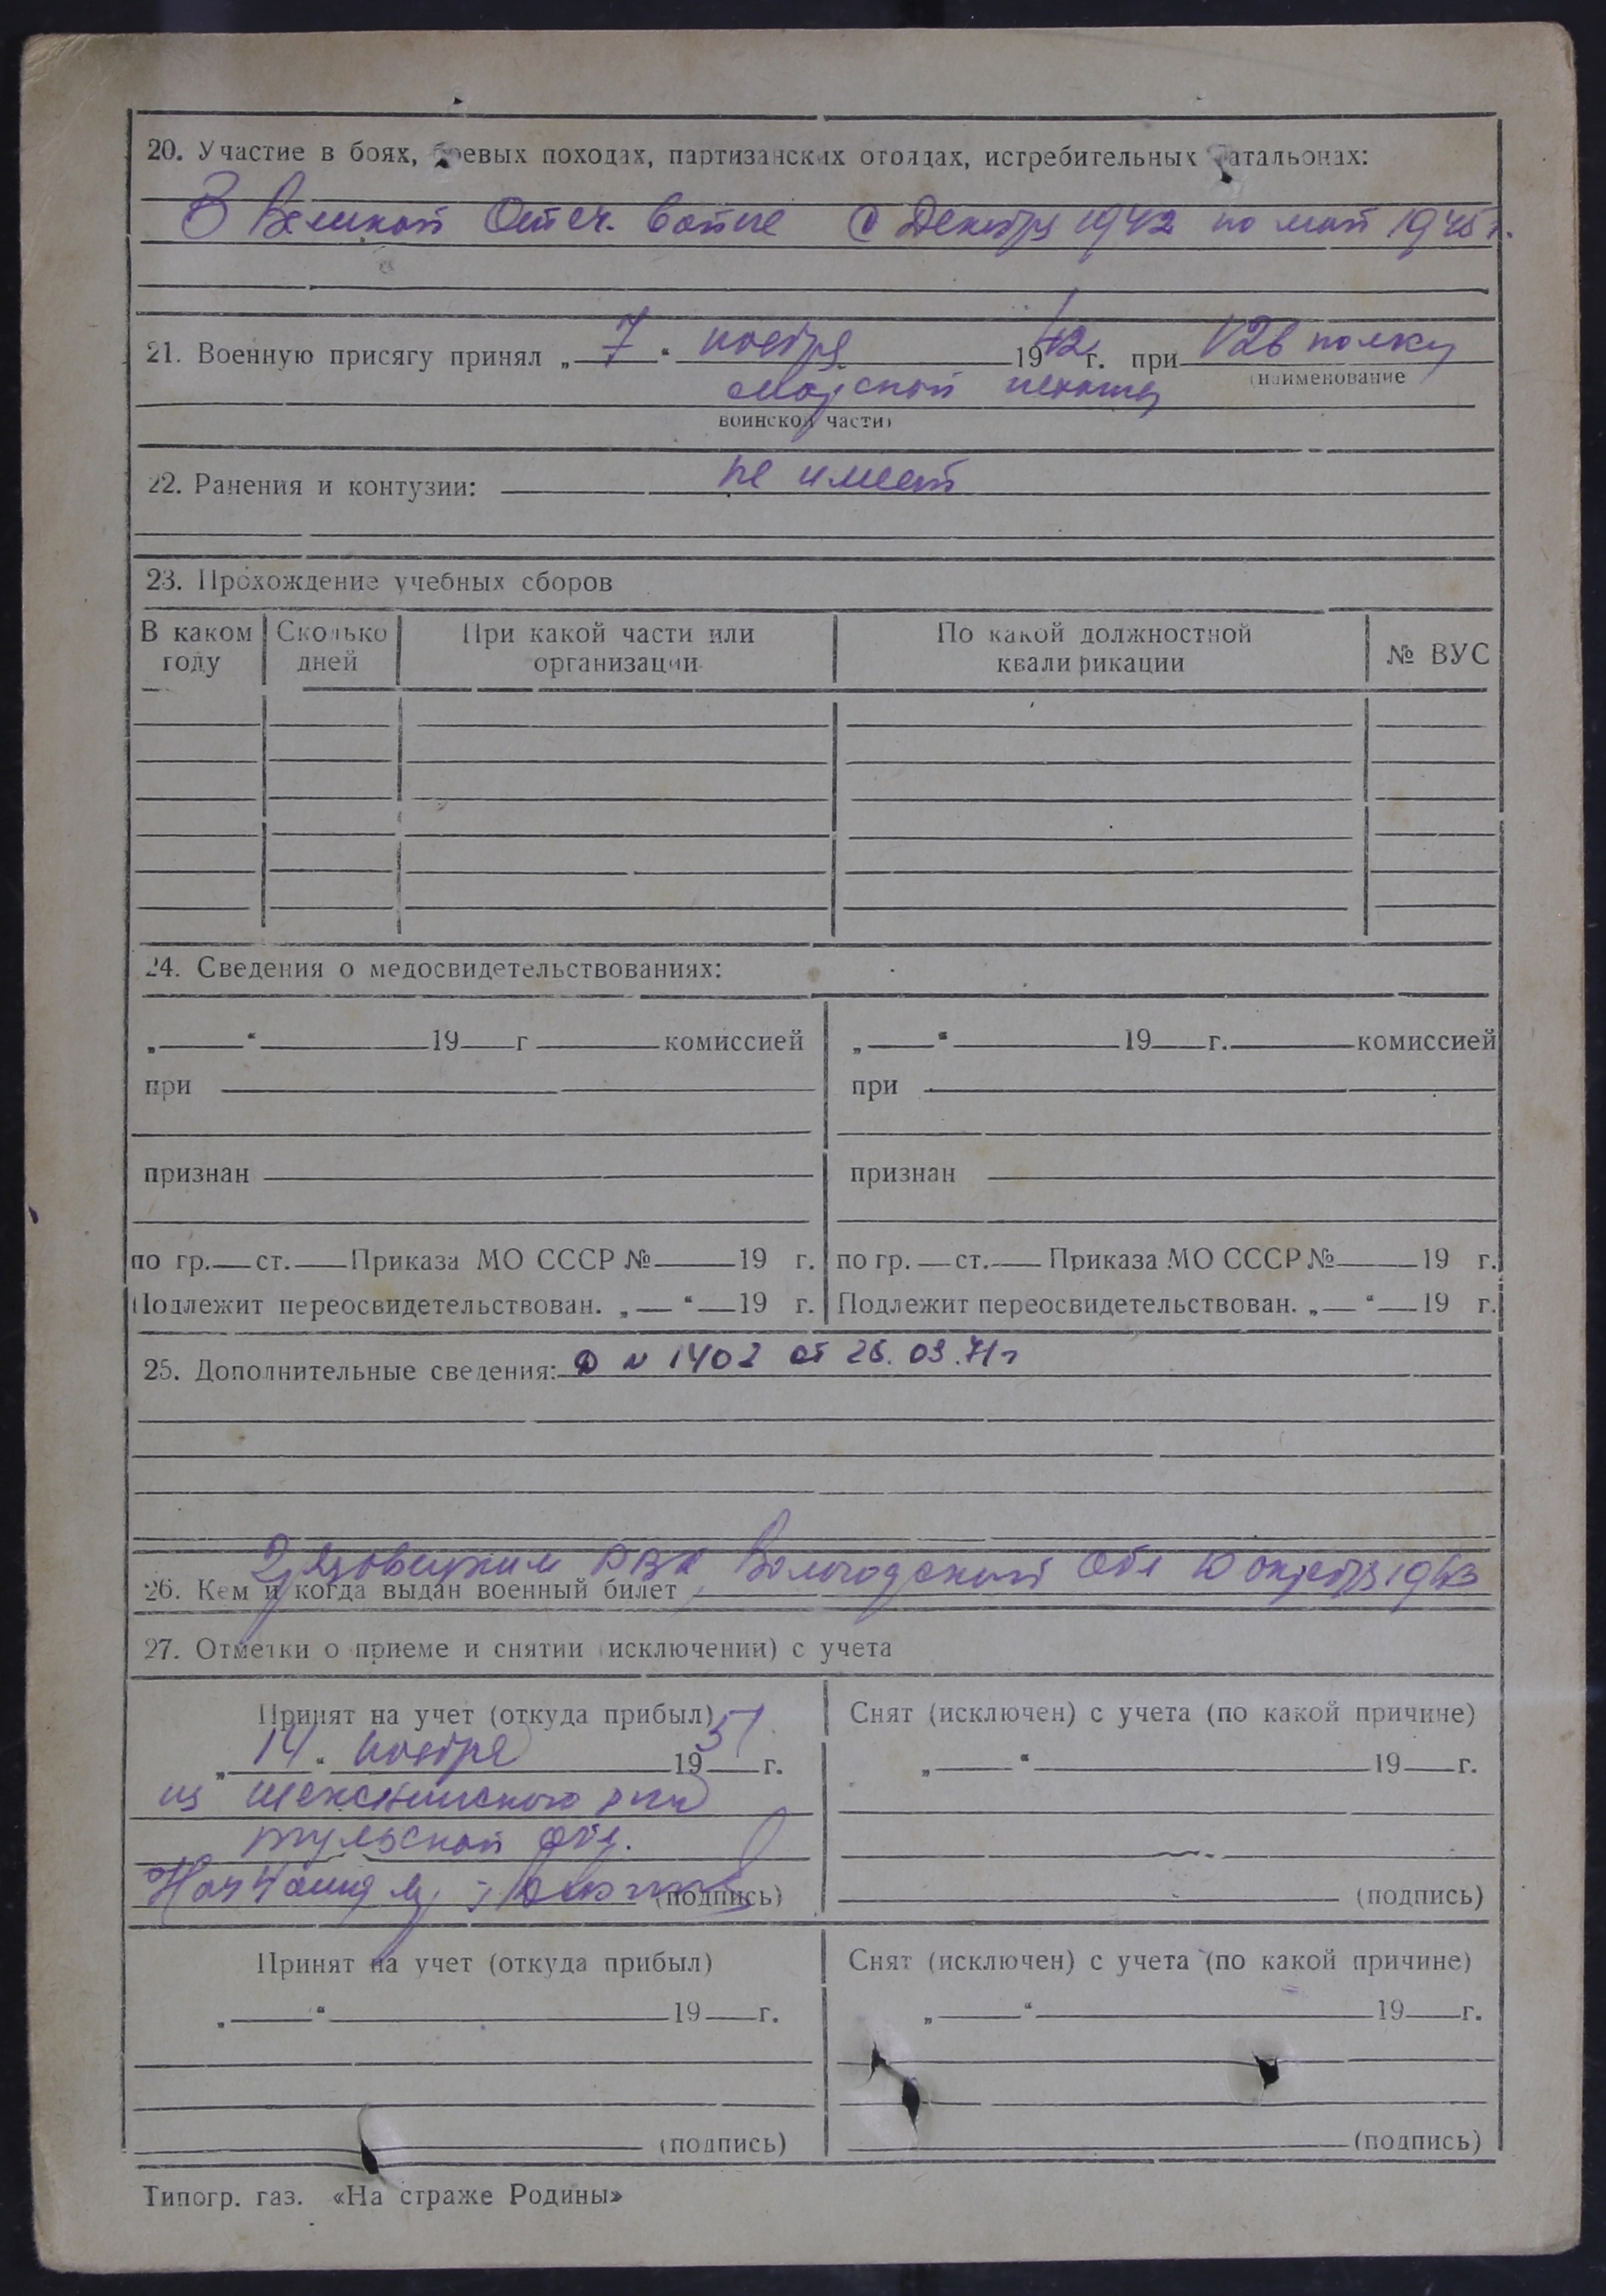 20. Участие в боях, боевых походах, партизанских отрядах, истребительных батальонах:
В Великой Отеч. войне с Декабря 1942 по май 1945 г.
21. Военную присягу принял „ 7 “ ноября 1942 г. при 126 полку
(наименование
морской пехоты
воинской части)
22. Ранения и контузии: не имеет
23. Прохождение учебных сборов
В каком году Сколько дней При какой части или организации По какой должностной квалификации № ВУС
24. Сведения о медосвидетельствованиях:
„ “ 19 г комиссией „ “ 19 г. комиссией
при при
признан признан
по гр. ст. Приказа МО СССР № 19 г. по гр. ст. Приказа МО СССР № 19 г.
Подлежит переосвидетельствован. „ “ 19 г. Подлежит переосвидетельствован. „ “ 19 г.
25. Дополнительные сведения: № 1402 от 26.03.71г
Грязовецким РВК Вологодской Обл 10 октября 1943
26. Кем и когда выдан военный билет
27. Отметки о приеме и снятии (исключении) с учета
Принят на учет (откуда прибыл) Снят (исключен) с учета (по какой причине)
„ 14 “ ноября 1957 г. „ “ 19 г.
из Шекснинского рвк
тульской обл.
Нач 4 (подпись) (подпись)
Принят на учет (откуда прибыл) Снят (исключен) с учета (по какой причине)
„ “ 19 г. „ “ 19 г.
(подпись) (подпись)
Типогр. газ. «На страже Родины»